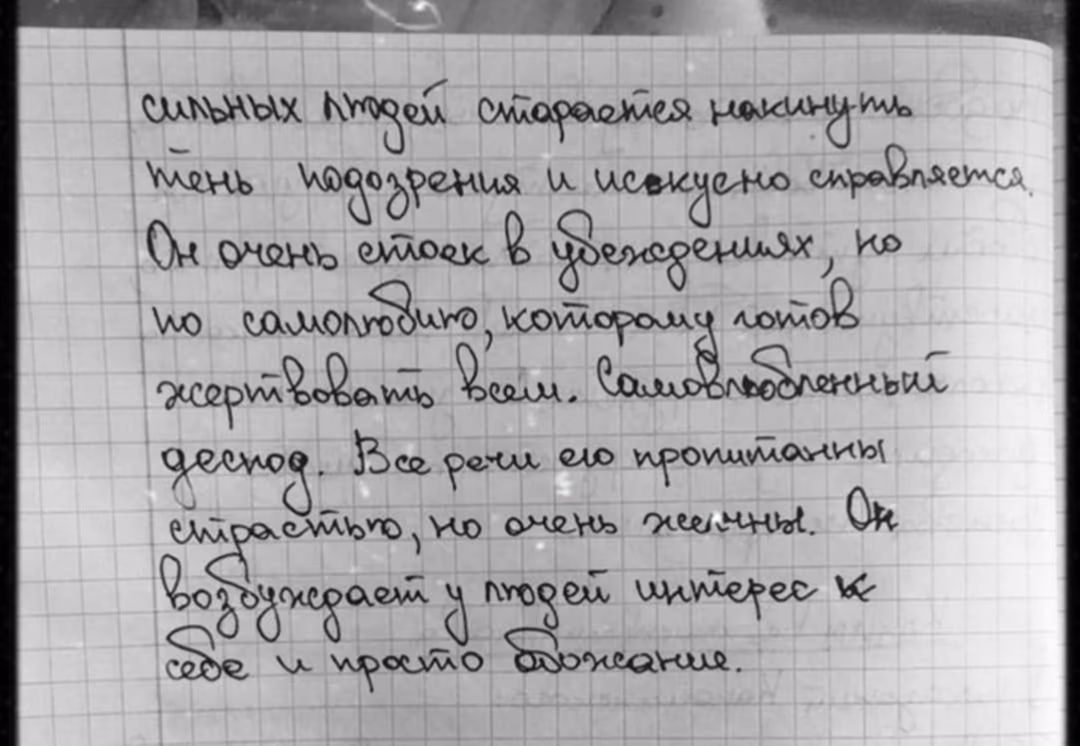 сильных людей старается накинуть
тень подозрения и искусно справляется.
Он очень стоек в убеждениях, но
но самолюбию, которому готов
жертвовать всем. Самовлюбленный
деспод. Все речи его пропитанны
страстью, но очень желчны. Он
возбуждает у людей интерес к
себе и просто обожание.